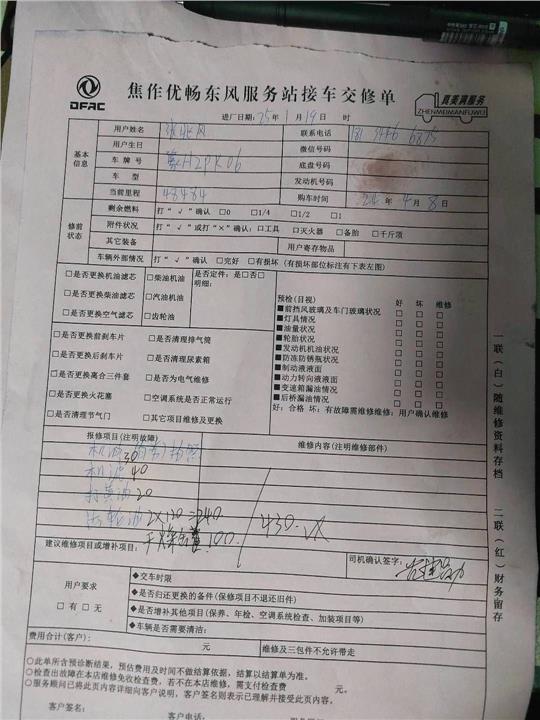 DFAC
焦作优畅东风服务站接车交修单
真美满服务
ZHENMEIMANFUWU
进厂日期: 25年 1月 19日 时
基本信息
用户姓名 联系电话
用户生日 微信号码
车牌号 豫H2PK06 底盘号码
车型 发动机号码
当前里程 48484 购车时间 24年 4月 8日
修前状态
剩余燃料 打“√”确认 □0 □1/4 □1/2 □1
附件状况 打“√”或打“×”确认: □工具 □灭火器 □备胎 □千斤顶
其它装备 用户寄存物品
车辆外部情况 打“√”确认 □完好 □有损坏 (有损坏部位标注有下表左图)
□是否更换机油滤芯 □柴油机油 是否定件: 是□否□
□是否更换柴油滤芯 □汽油机油 明细:
□是否更换空气滤芯 □齿轮油
□是否更换前刹车片 □是否清理排气筒
□是否更换后刹车片 □是否清理尿素箱
□是否更换离合三件套 □是否为电气维修
□是否更换火花塞 □空调系统是否正常运行
□是否清理节气门 □其它项目维修及更换
预检(目视) 好 坏 维修
■前挡风玻璃及车门玻璃状况 □ □ □
■灯具情况 □ □ □
■油量状况 □ □ □
■轮胎状况 □ □ □
■发动机机油状况 □ □ □
■防冻防锈瓶状况 □ □ □
■制动液液面 □ □ □
■动力转向液液面 □ □ □
■变速箱漏油情况 □ □ □
■后桥漏油情况 □ □ □
好: 合格 坏: 有故障需维修维修: 用户确认维修
报修项目(注明故障) 维修内容(注明维修部件)
机油 30
机滤 40
打黄油 20
齿轮油 2×120=240
100
430
建议维修项目或增补项目: 司机确认签字:
用户要求
□有 □无
◆交车时限
◆是否归还更换的备件(保修项目不退还旧件)
◆是否增补其他项目(保养、年检、空调系统检查、加装项目等)
◆车辆是否需要清洁:
费用合计(客户): 元 维修及三包件不允许带走
○此单所含预诊断结果, 预估费用及时间不做结算依据, 结算以结算单为准。
○检查出故障在本店维修免收检查费, 若不在本店维修, 需支付检查费 元。
○服务顾问已将此页内容详细向客户说明, 客户签名则表示已理解并接受此页内容。
客户签名: 客户电话: 服务顾问签名:
一联(白)随维修资料存档
二联(红)财务留存